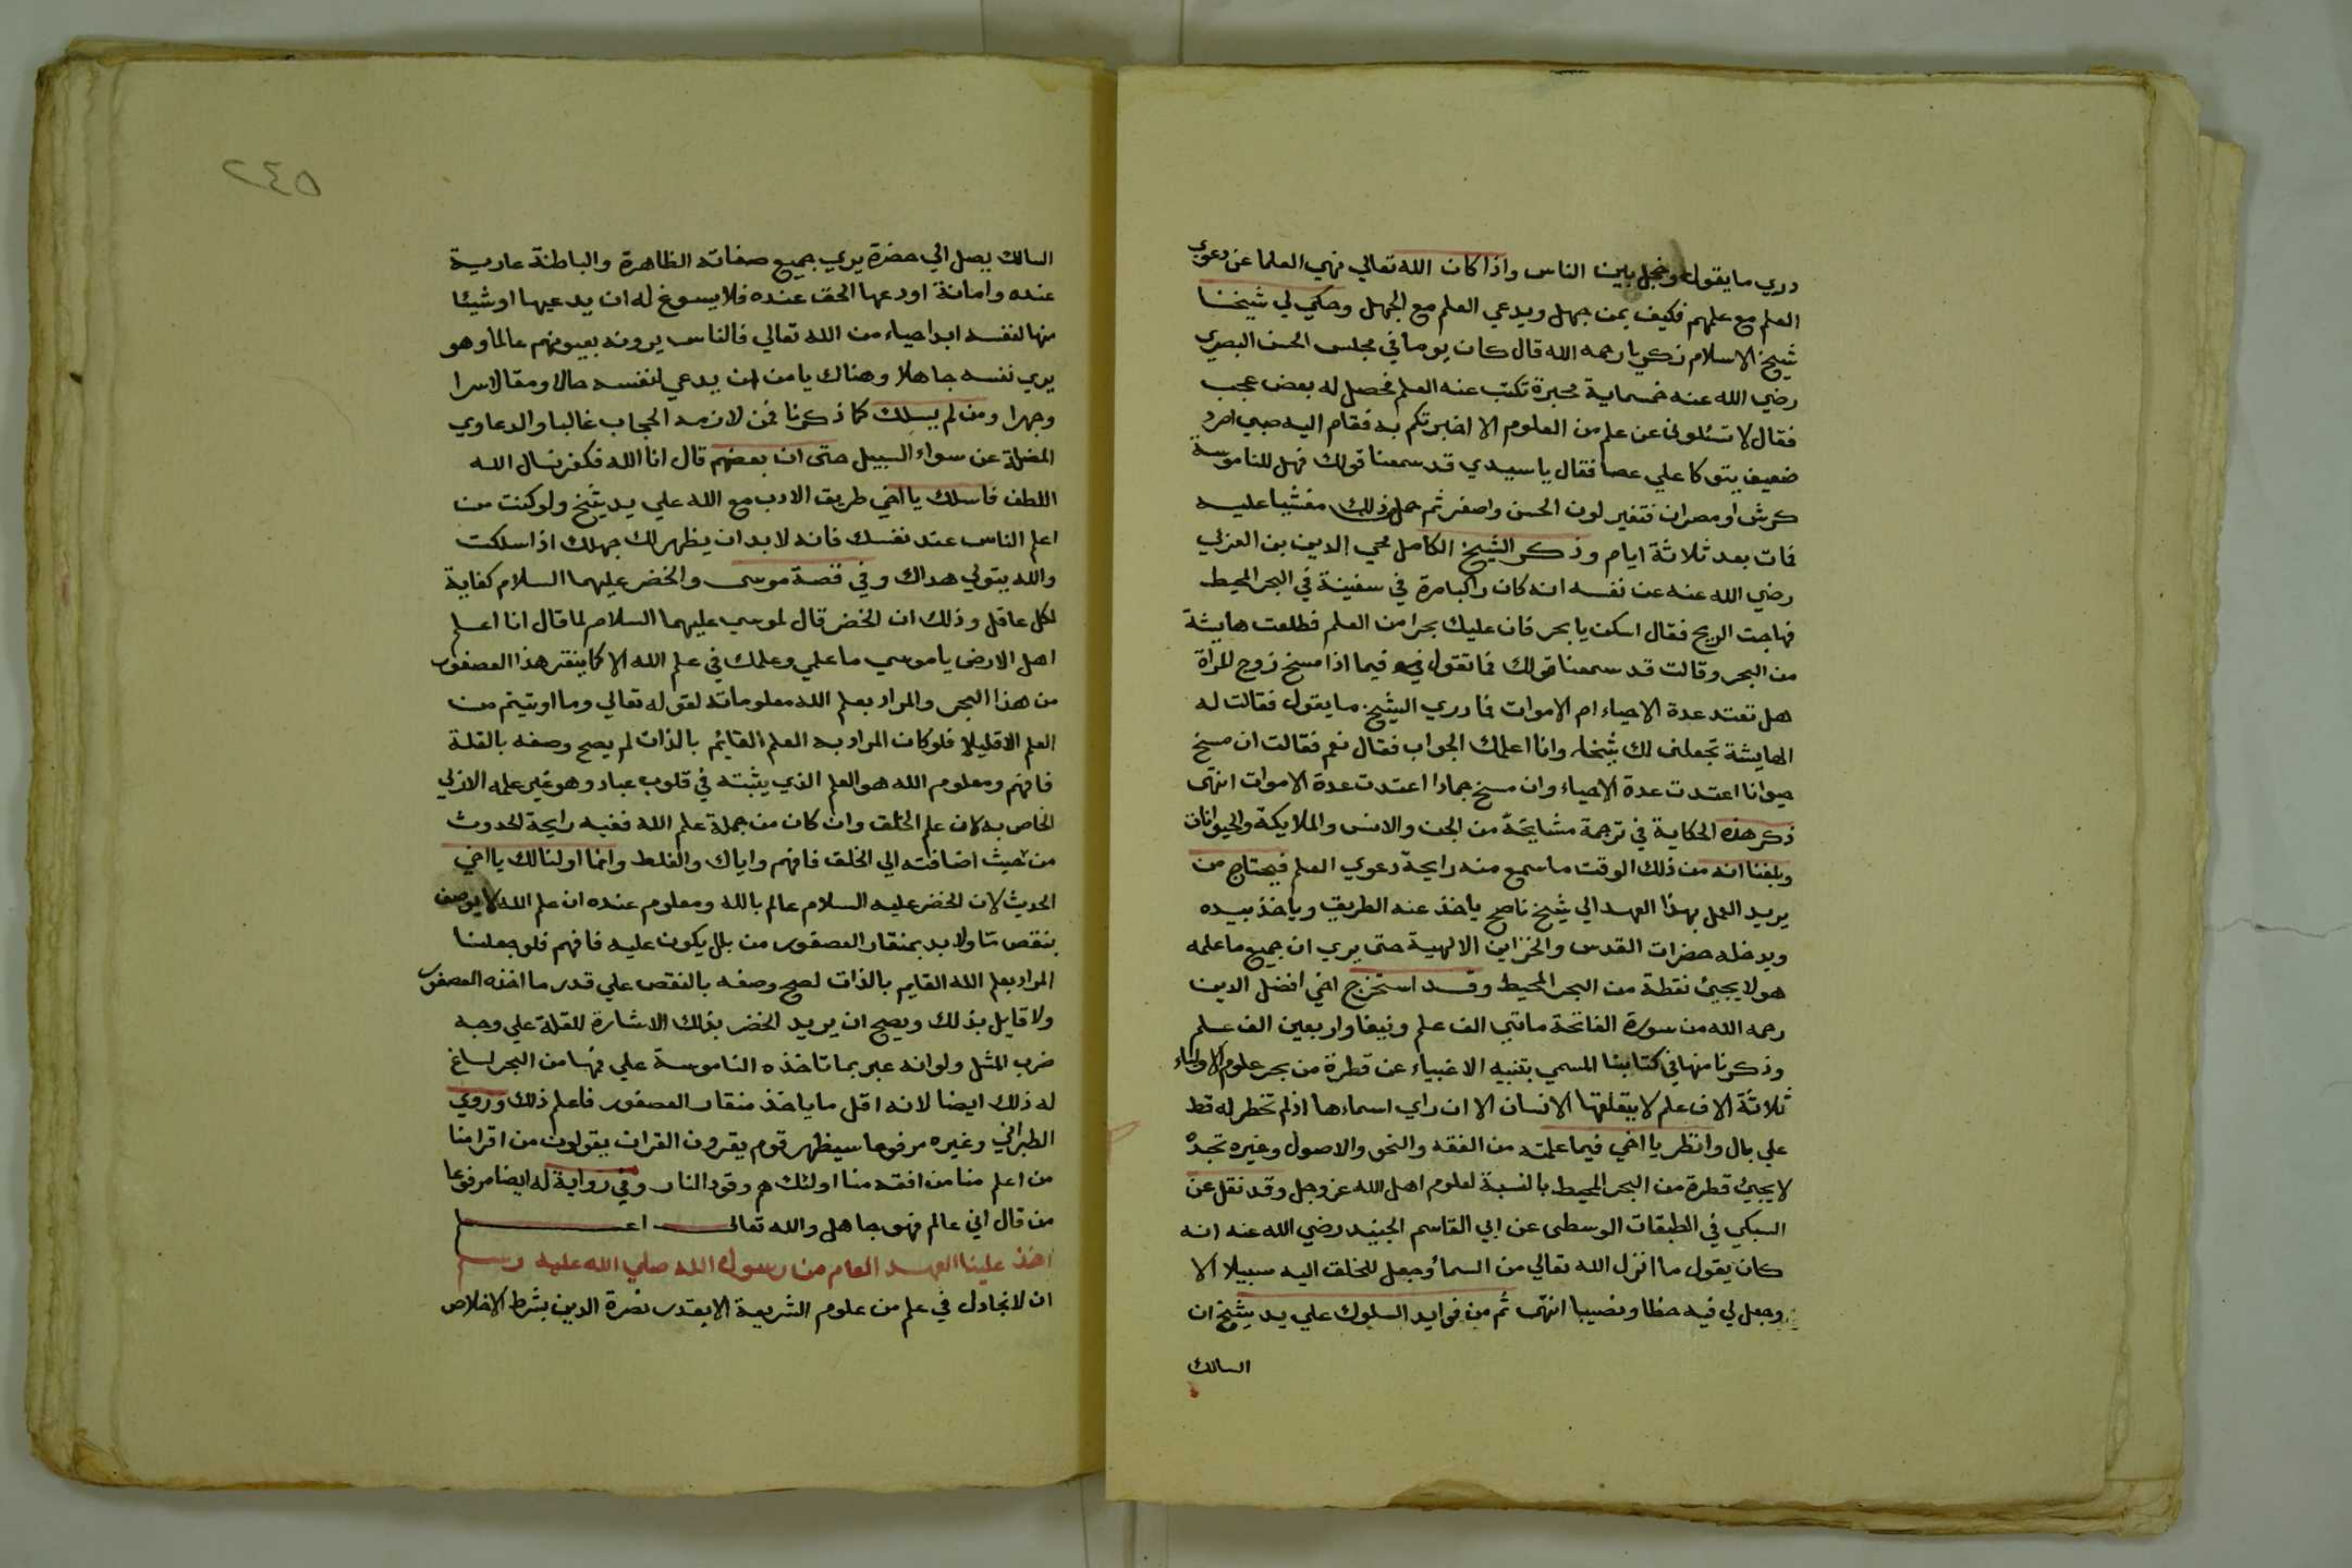 دري ما يقول وخجل بين الناس واذا كان الله تعالي نهي العلما عن دعوي
العلم مع علمهم فكيف بمن جهل ويدعي العلم مع الجهل وحكي لي شيخنا
شيخ الاسلام زكريا رحمه الله قال كان يوما في مجلس الحسن البصري
رضي الله عنه خمسماية محبرة تكتب عنه العلم فحصل له بعض عجب
فقال لا تسئلونى عن علم من العلوم الا اخبرتكم به فقام اليه صبي امرد
ضعيف يتوكا علي عصا فقال يا سيدي قد سمعنا قولك فهل للناموسة
كرش او مصران فتغير لون الحسن واصفر ثم حمل ذلك مغشيا عليه
فمات بعد ثلاثة ايام وذكر الشيخ الكامل محي الدين بن العربي
رضي الله عنه عن نفسه انه كان راكبا مرة في سفينة في البحر المحيط
فهاجت الريح فقال اسكن يا بحر فان عليك بحرا من العلم فطلعت هايشة
من البحر وقالت قد سمعنا قولك فما تقول في فيما اذا مسخ زوج المرأة
هل تعتد عدة الاحياء ام الاموات فما دري الشيخ ما يقول فقالت له
الهايشة تجعلنى لك شيخا وانا اعلمك الجواب فقال نعم فقالت ان مسخ
حيوانا اعتدت عدة الاحياء وان مسخ جمادا اعتدت عدة الاموات انتهى
ذكر هذه الحكاية في ترجمة مشايخة من الجن والانس والملايكة والحيوانات
وبلغنا انه من ذلك الوقت ما سمع منه رايحة دعوي العلم فيحتاج من
يريد العمل بهذا العهد الي شيخ ناصح ياخذ عنه الطريق وياخذ بيده
ويدخله حضرات القدس والخزاين الالهية حتى يري ان جميع ما علمه
هو لا يجيئ نقطة من البحر المحيط وقد استخرج اخي افضل الدين
رحمه الله من سورة الفاتحة مائتي الف علم ونيفا واربعين الف علم
وذكرنا منها في كتابنا المسمي بتنبيه الاغبياء عن قطرة من بحر علوم الاولياء
ثلاثة الاف علم لا يتعلقها الانسان الا ان راي اسماءها اذ لم تخطر له قط
علي بال وانظر يا اخي فيما علمته من الفقه والنحو والاصول وغيره تجده
لا يجيئ قطرة من البحر المحيط بالنسبة لعلوم اهل الله عز وجل وقد نقل عن
السبكي في الطبقات الوسطى عن ابي القاسم الجنيد رضي الله عنه انه
كان يقول ما انزل الله تعالي من السماء وجعل للخلق اليه سبيلا الا
وجعل لي فيه حظا ونصيبا انتهى ثم من فوايد السلوك علي يد شيخ ان
السالك
٢٤٥
السالك يصل الي حضرة يري جميع صفاته الظاهرة والباطنة عارية
عنده وامانة اودعها الحق عنده فلا يسوغ له ان يدعيها او شيئا
منها لنفسه ابدا حياء من الله تعالي فالناس يرونه بعيونهم عالما وهو
يري نفسه جاهلا وهناك يا من ان يدعي لنفسه حالا ومقالا سرا
وجهرا ومن لم يسلك كما ذكرنا فمن لازمه الحجاب غالبا والدعاوي
المضلة عن سواء السبيل حتى ان بعضهم قال انا الله فكفر نسال الله
اللطف فاسلك يا اخي طريق الادب مع الله علي يد شيخ ولو كنت من
اعلم الناس عند نفسك فانه لا بد ان يظهر لك جهلك اذا سلكت
والله يتولي هداك وفي قصة موسى والخضر عليهما السلام كفاية
لكل عاقل وذلك ان الخضر قال لموسي عليهما السلام لما قال انا اعلم
اهل الارض يا موسي ما علمي وعلمك في علم الله الا كما ينقر هذا العصفور
من هذا البحر والمراد بعلم الله معلوماته لقوله تعالي وما اوتيتم من
العلم الا قليلا فلو كان المراد به العلم القائم بالذات لم يصح وصفه بالقلة
فافهم ومعلوم الله هو العلم الذي يثبته في قلوب عباد وهو غير علمه الازلي
الخاص به لان علم الخلق وان كان من جملة علم الله ففيه رايحة الحدوث
من حيث اضافته الي الخلق فافهم واياك والغلط وانما اولنا لك يا اخي
الحديث لان الخضر عليه السلام عالم بالله ومعلوم عنده ان علم الله لا يوصف
بنقص مّا ولا بد بمنقار العصفور من بلل يكون عليه فافهم فلو جعلنا
المراد بعلم الله القايم بالذات لصح وصفه بالنقص علي قدر ما اخذه العصفور
ولا قايل بذلك ويصح ان يريد الخضر بذلك الاشارة للقلة علي وجه
ضرب المثل ولو انه عبر بما تاخذه الناموسة علي فمها من البحر لساغ
له ذلك ايضا لانه اقل ما ياخذ منقار العصفور فاعلم ذلك وروي
الطبراني وغيره مرفوعا سيظهر قوم يقرون القران يقولون من اقرا منا
من اعلم منا من افقه منا اولئك هم وقود النار وفي رواية له ايضا مرفوعا
من قال اني عالم فهو جاهل والله تعالى اعلم
اخذ علينا العهد العام من رسول الله صلي الله عليه وسم
ان لا نجادل في علم من علوم الشريعة الا بقدر نصرة الدين بشرط الاخلاص